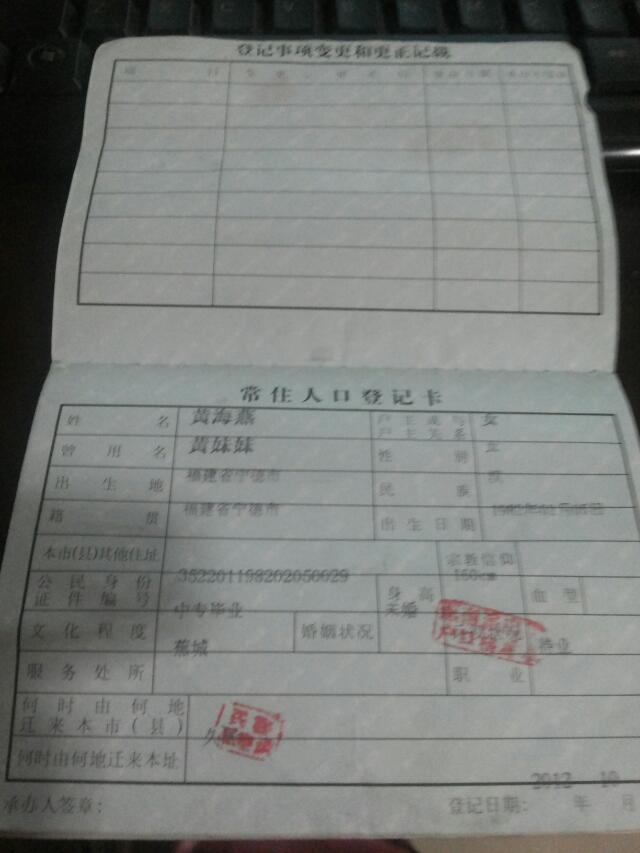 登记事项变更和更正记载
常住人口登记卡
姓名 黄海燕 户主或与户主关系 女
曾用名 黄妹妹 性别 女
出生地 福建省宁德市 民族 汉
籍贯 福建省宁德市 出生日期
本市(县)其他住址 宗教信仰
公民身份证件编号 352201198202050029 身高 160cm 血型
文化程度 中专毕业 婚姻状况 未婚
服务处所 蕉城 职业 待业
何时由何地迁来本市(县)
何时由何地迁来本址
承办人签章: 登记日期: 2012 年 10 月